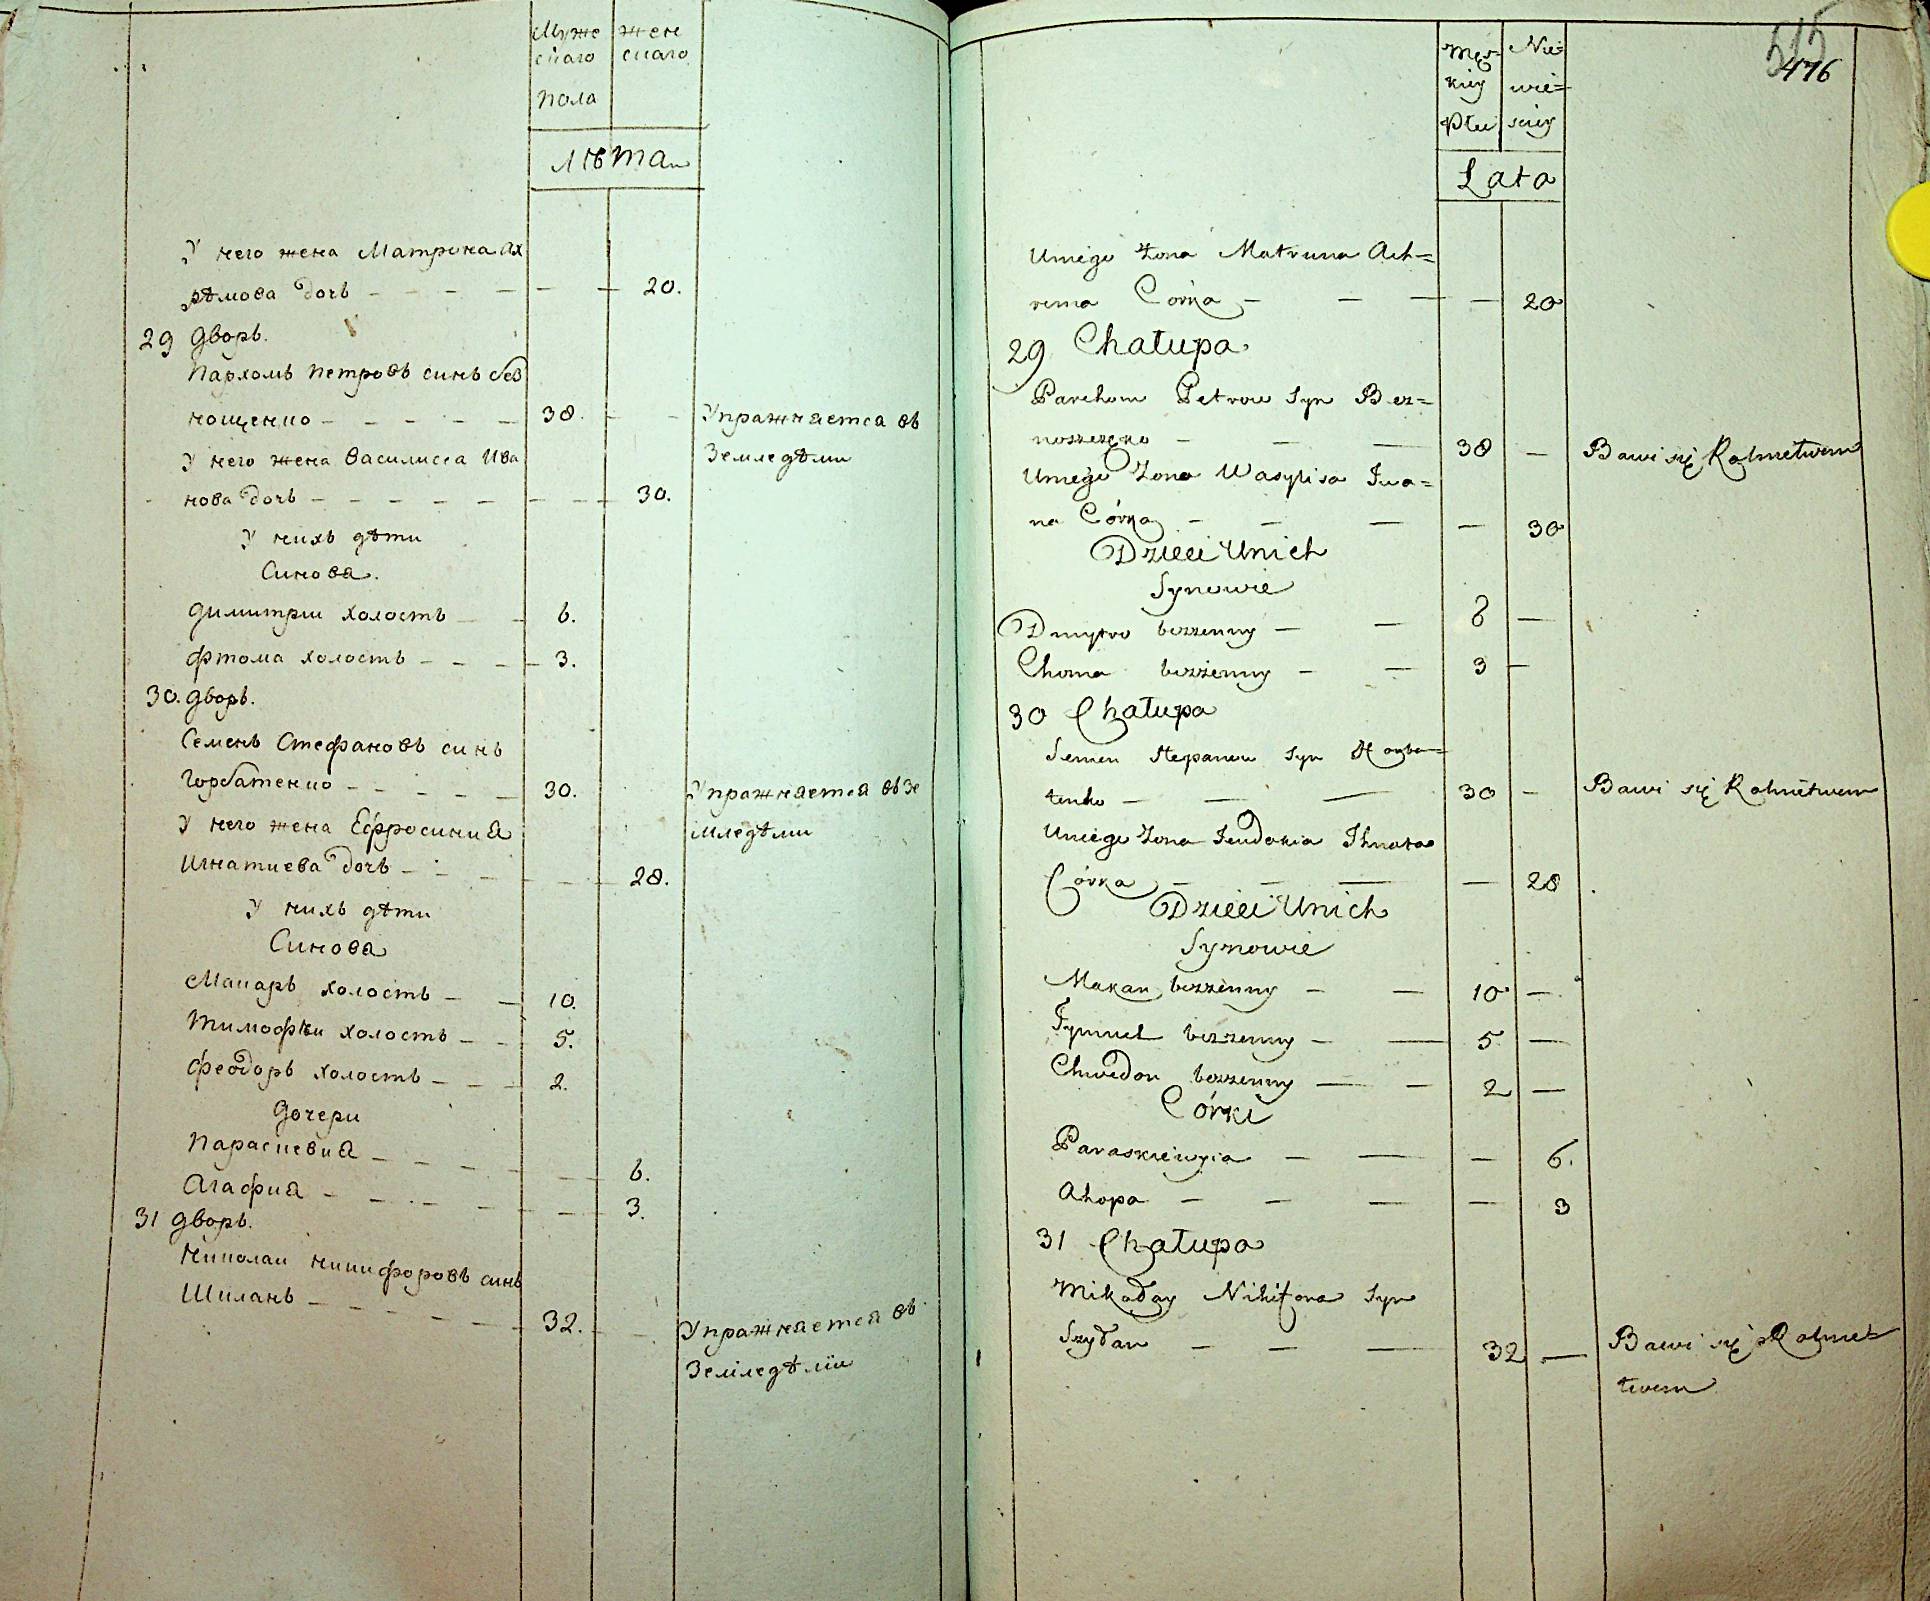 Муже жен
скаго скаго
пола
лѣта
У него жена Матрона Ах
рѣмова дочь - - - - - - 20.
29 дворъ.
Пархомъ Петровъ синъ без
нощенко - - - - - 38. - - Упражняется въ
Земледѣли
У него жена Василисса Ива
нова дочь - - - - - - - - 30.
У нихъ дѣти
Синовя.
Димитрии холостъ - - 6.
Фтома холостъ - - - - 3.
30. дворъ.
Семенъ Стефановъ синъ
Горбатенко - - - - - 30. Упражняется въ Зе
мледѣли
У него жена Ефросиния
Игнатиева дочь - - - - - 28.
У нихъ дѣти
Синовя
Макаръ холостъ - - 10.
Тимофѣи холостъ - - 5.
Феодоръ холостъ - - - 2.
Дочери
Параскевия - - - - - - 6.
Агафия - - - - - - - 3.
31 дворъ.
Николаи Никифоровъ синъ
Шиланъ - - - - - 32. - - Упражняется въ
Земледѣлїи
515
476
Męs= Nie=
kiey wie=
Płci sciey
Lata
Uniego Żona Matruna Ach=
rema Córka - - - - 20
29 Chałupa
Parchom Petrow Syn Bez=
noszczęko - - - 38 - Bawi się Rolnictwem
Uniego Żona Wasylisa Iwa=
na Córka - - - - 30
Dzieci Unich
Synowie
Dmytro bezżenny - - 6 -
Choma bezżenny - - 3 -
30 Chałupa
Semen Stepanow Syn Horba=
tenko - - - 30 - Bawi się Rolnictwem
Uniego Żona Jeudokia Ihnata
Córka - - - - 28
Dzieci Unich
Synowie
Makar bezżenny - - 10 -
Tymueh bezżenny - - 5 -
Chwedor bezżenny - - 2 -
Córki
Paraskiewyia - - - 6.
Ahapa - - - - 3
31 Chałupa
Mikołay Nikifora Syn
Szyłan - - - 32 - Bawi się Rolnic=
twem